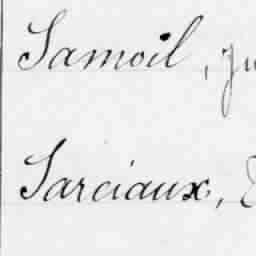 Samoil, Ju
Sarciaux,